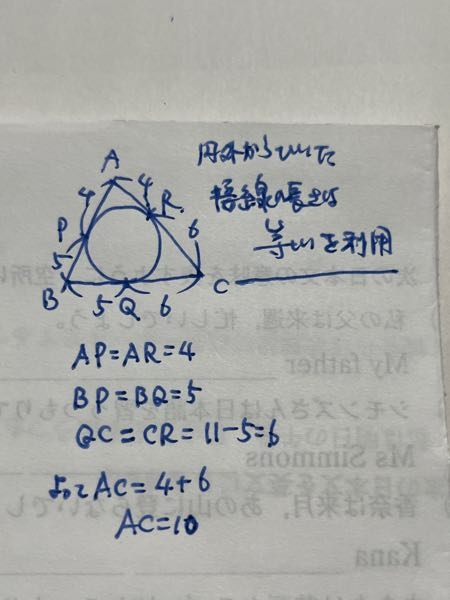 円外からひいた
接線の長さは
等しいを利用
A
4 4
P R
5 6
B 5 Q 6 C
AP=AR=4
BP=BQ=5
QC=CR=11-5=6
よってAC=4+6
AC=10
私の父は来週，忙しいでしょう。
My father
Ms Simmons
Kana